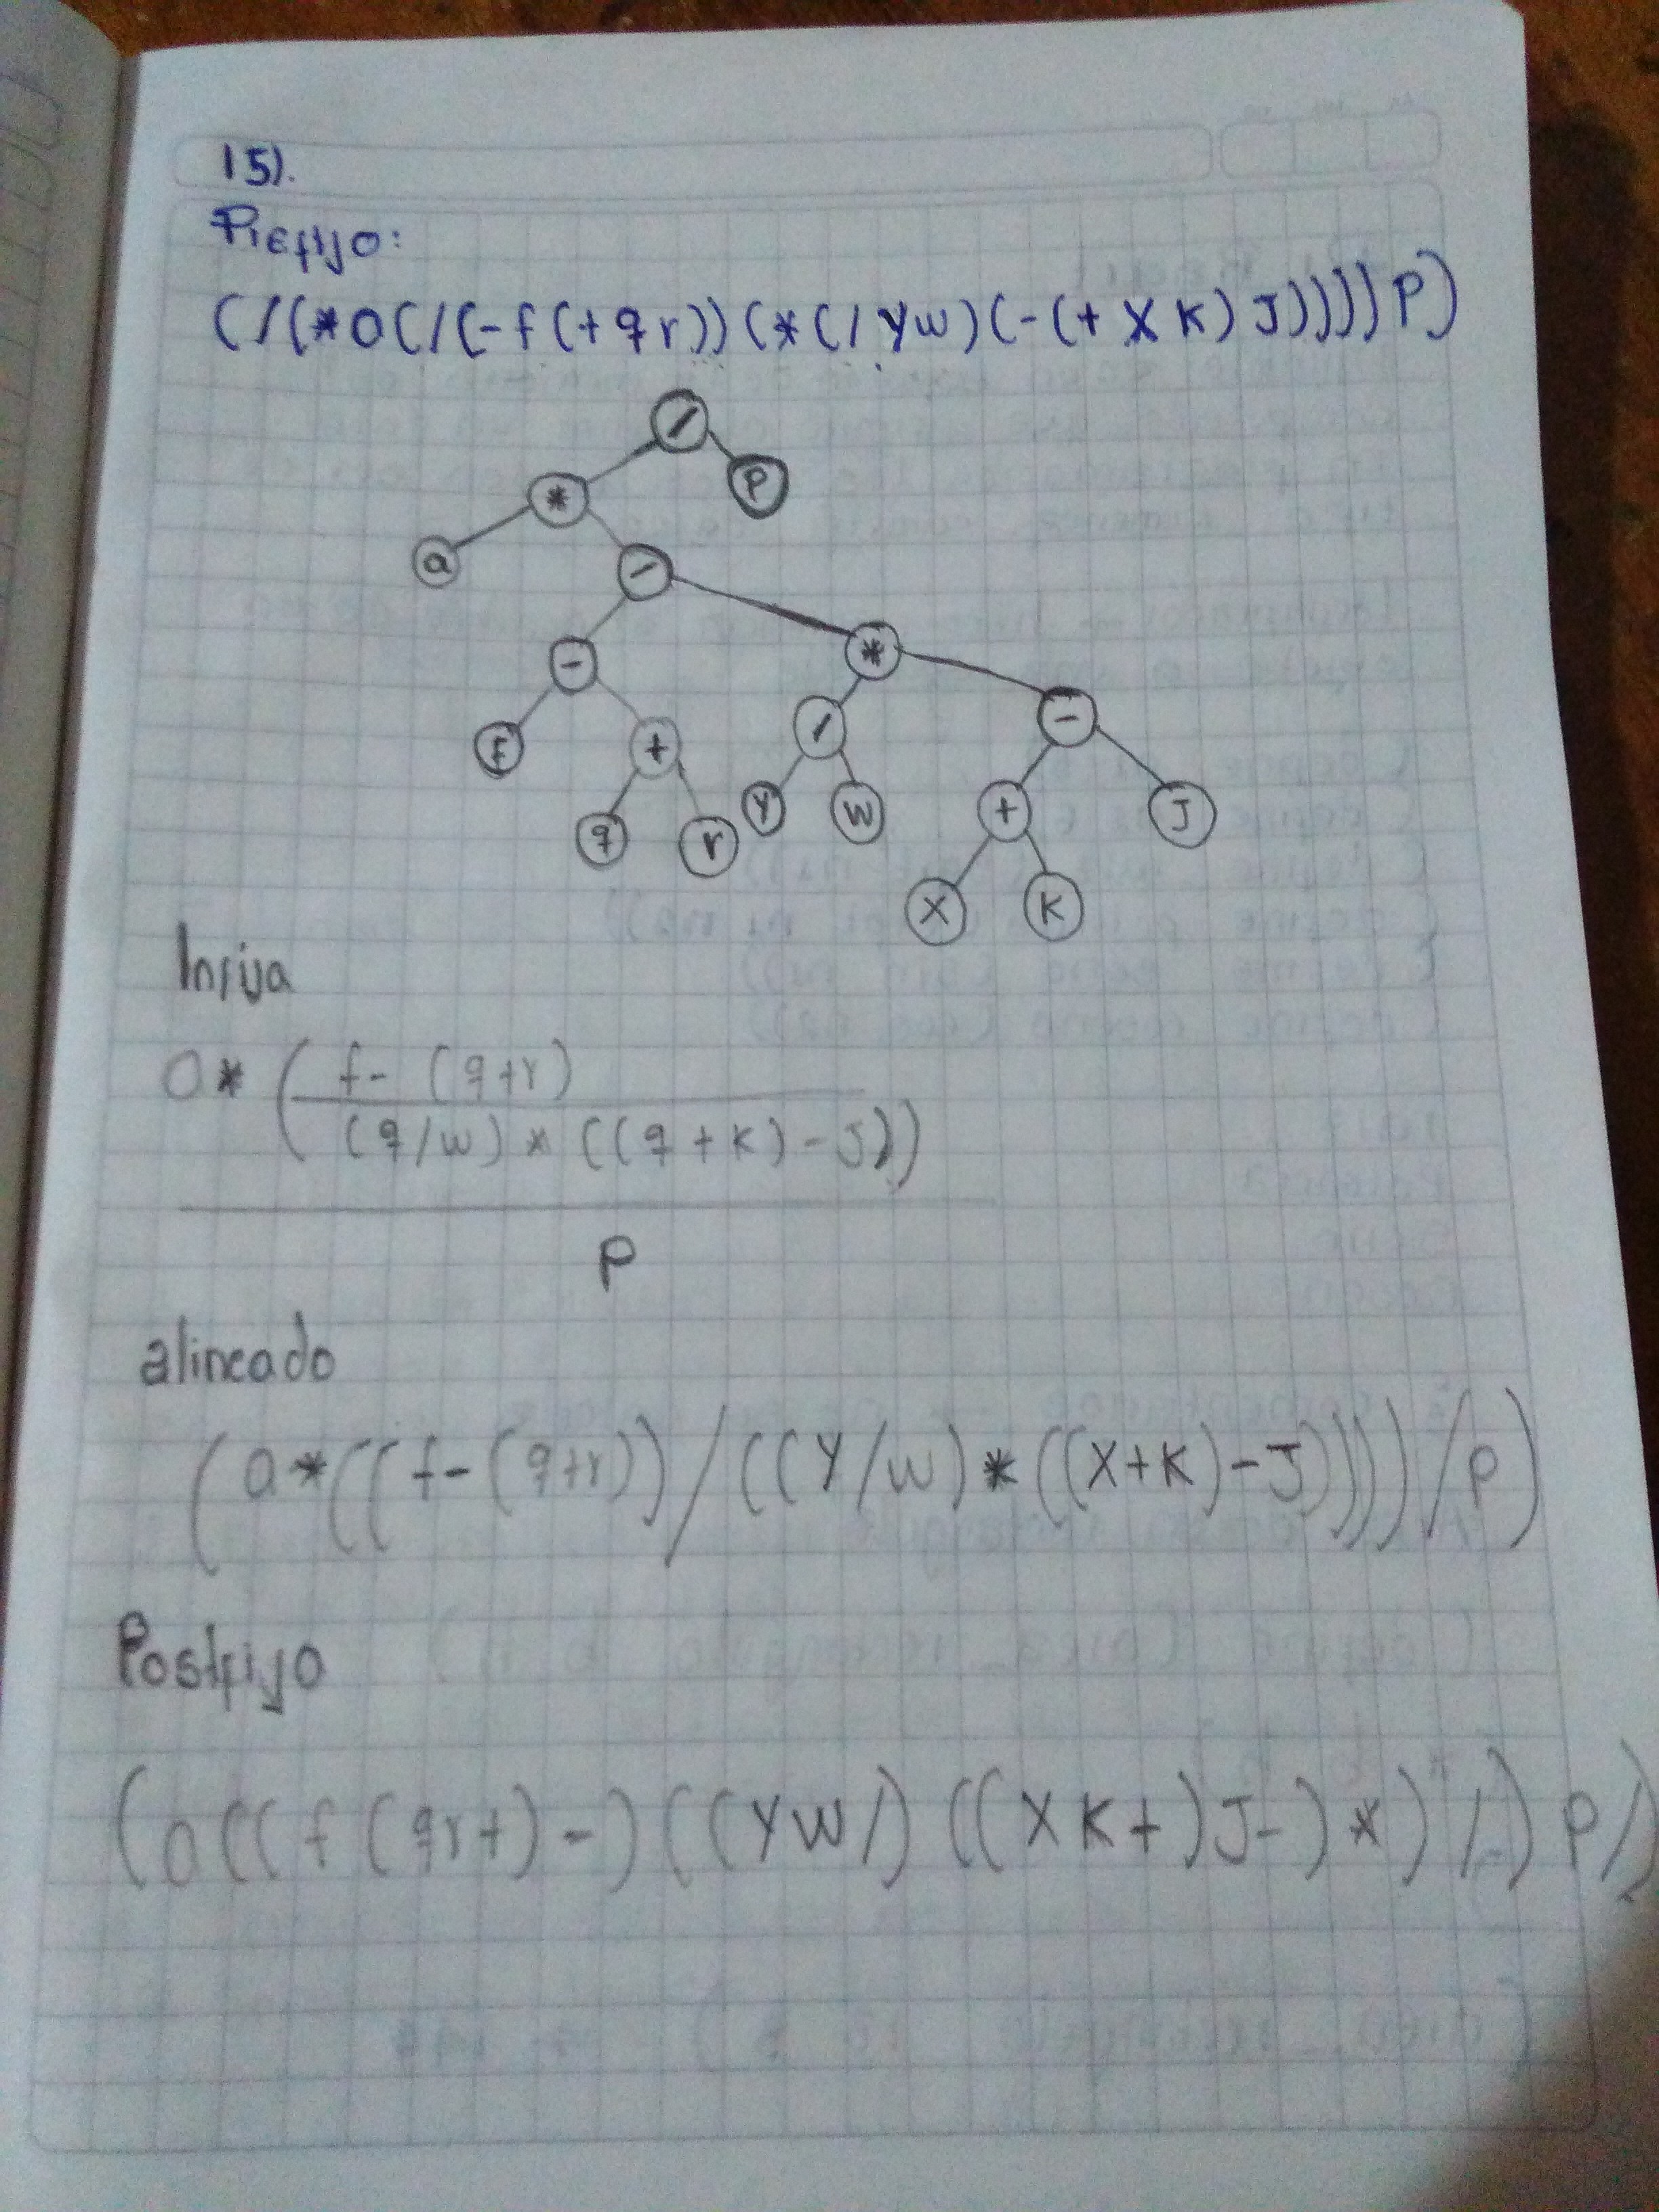 15).
Prefijo:
(/(*a(/(-f(+qr))(*(/yw)(-(+XK)J))))P)
/
* P
a /
- *
f + / -
q r y w + J
X K
Infija
a* ( f- (q+r)
(q/w) * ((q+K)-J))
P
alineado
(a*((f-(q+r))/((Y/w)*((X+K)-J))))/P)
Postfijo
(a((f(qr+)-)((YW/)((XK+)J-)*)/)P/)